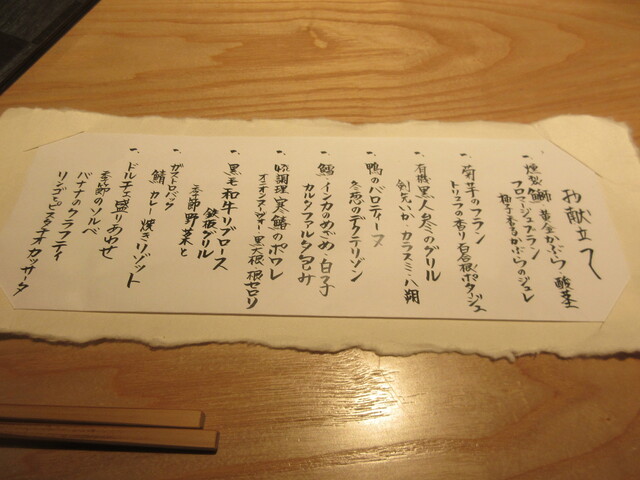 お献立て
燻製鰤 黄金かぶら 酸茎
フロマージュブラン
柚子香るかぶらのジュレ
菊芋のフラン
トリュフの香り 白谷根ポタージュ
有機黒人参のグリル
剣先いか カラスミ 八朔
鴨のバロティーヌ
冬忍のデクテリゾン
鱈・インカのめざめ・白子
カルタファタ包み
順調理 寒鰆のポワレ
オニオンスープ 黒大根 根セロリ
黒毛和牛リブロース
鉄板グリル
季節野菜と
ガストロバック
鯖 カレー焼きリゾット
ドルチェ盛りあわせ
季節のソルベ
バナナのクラフティ
リンゴとピスタチオカッサータ